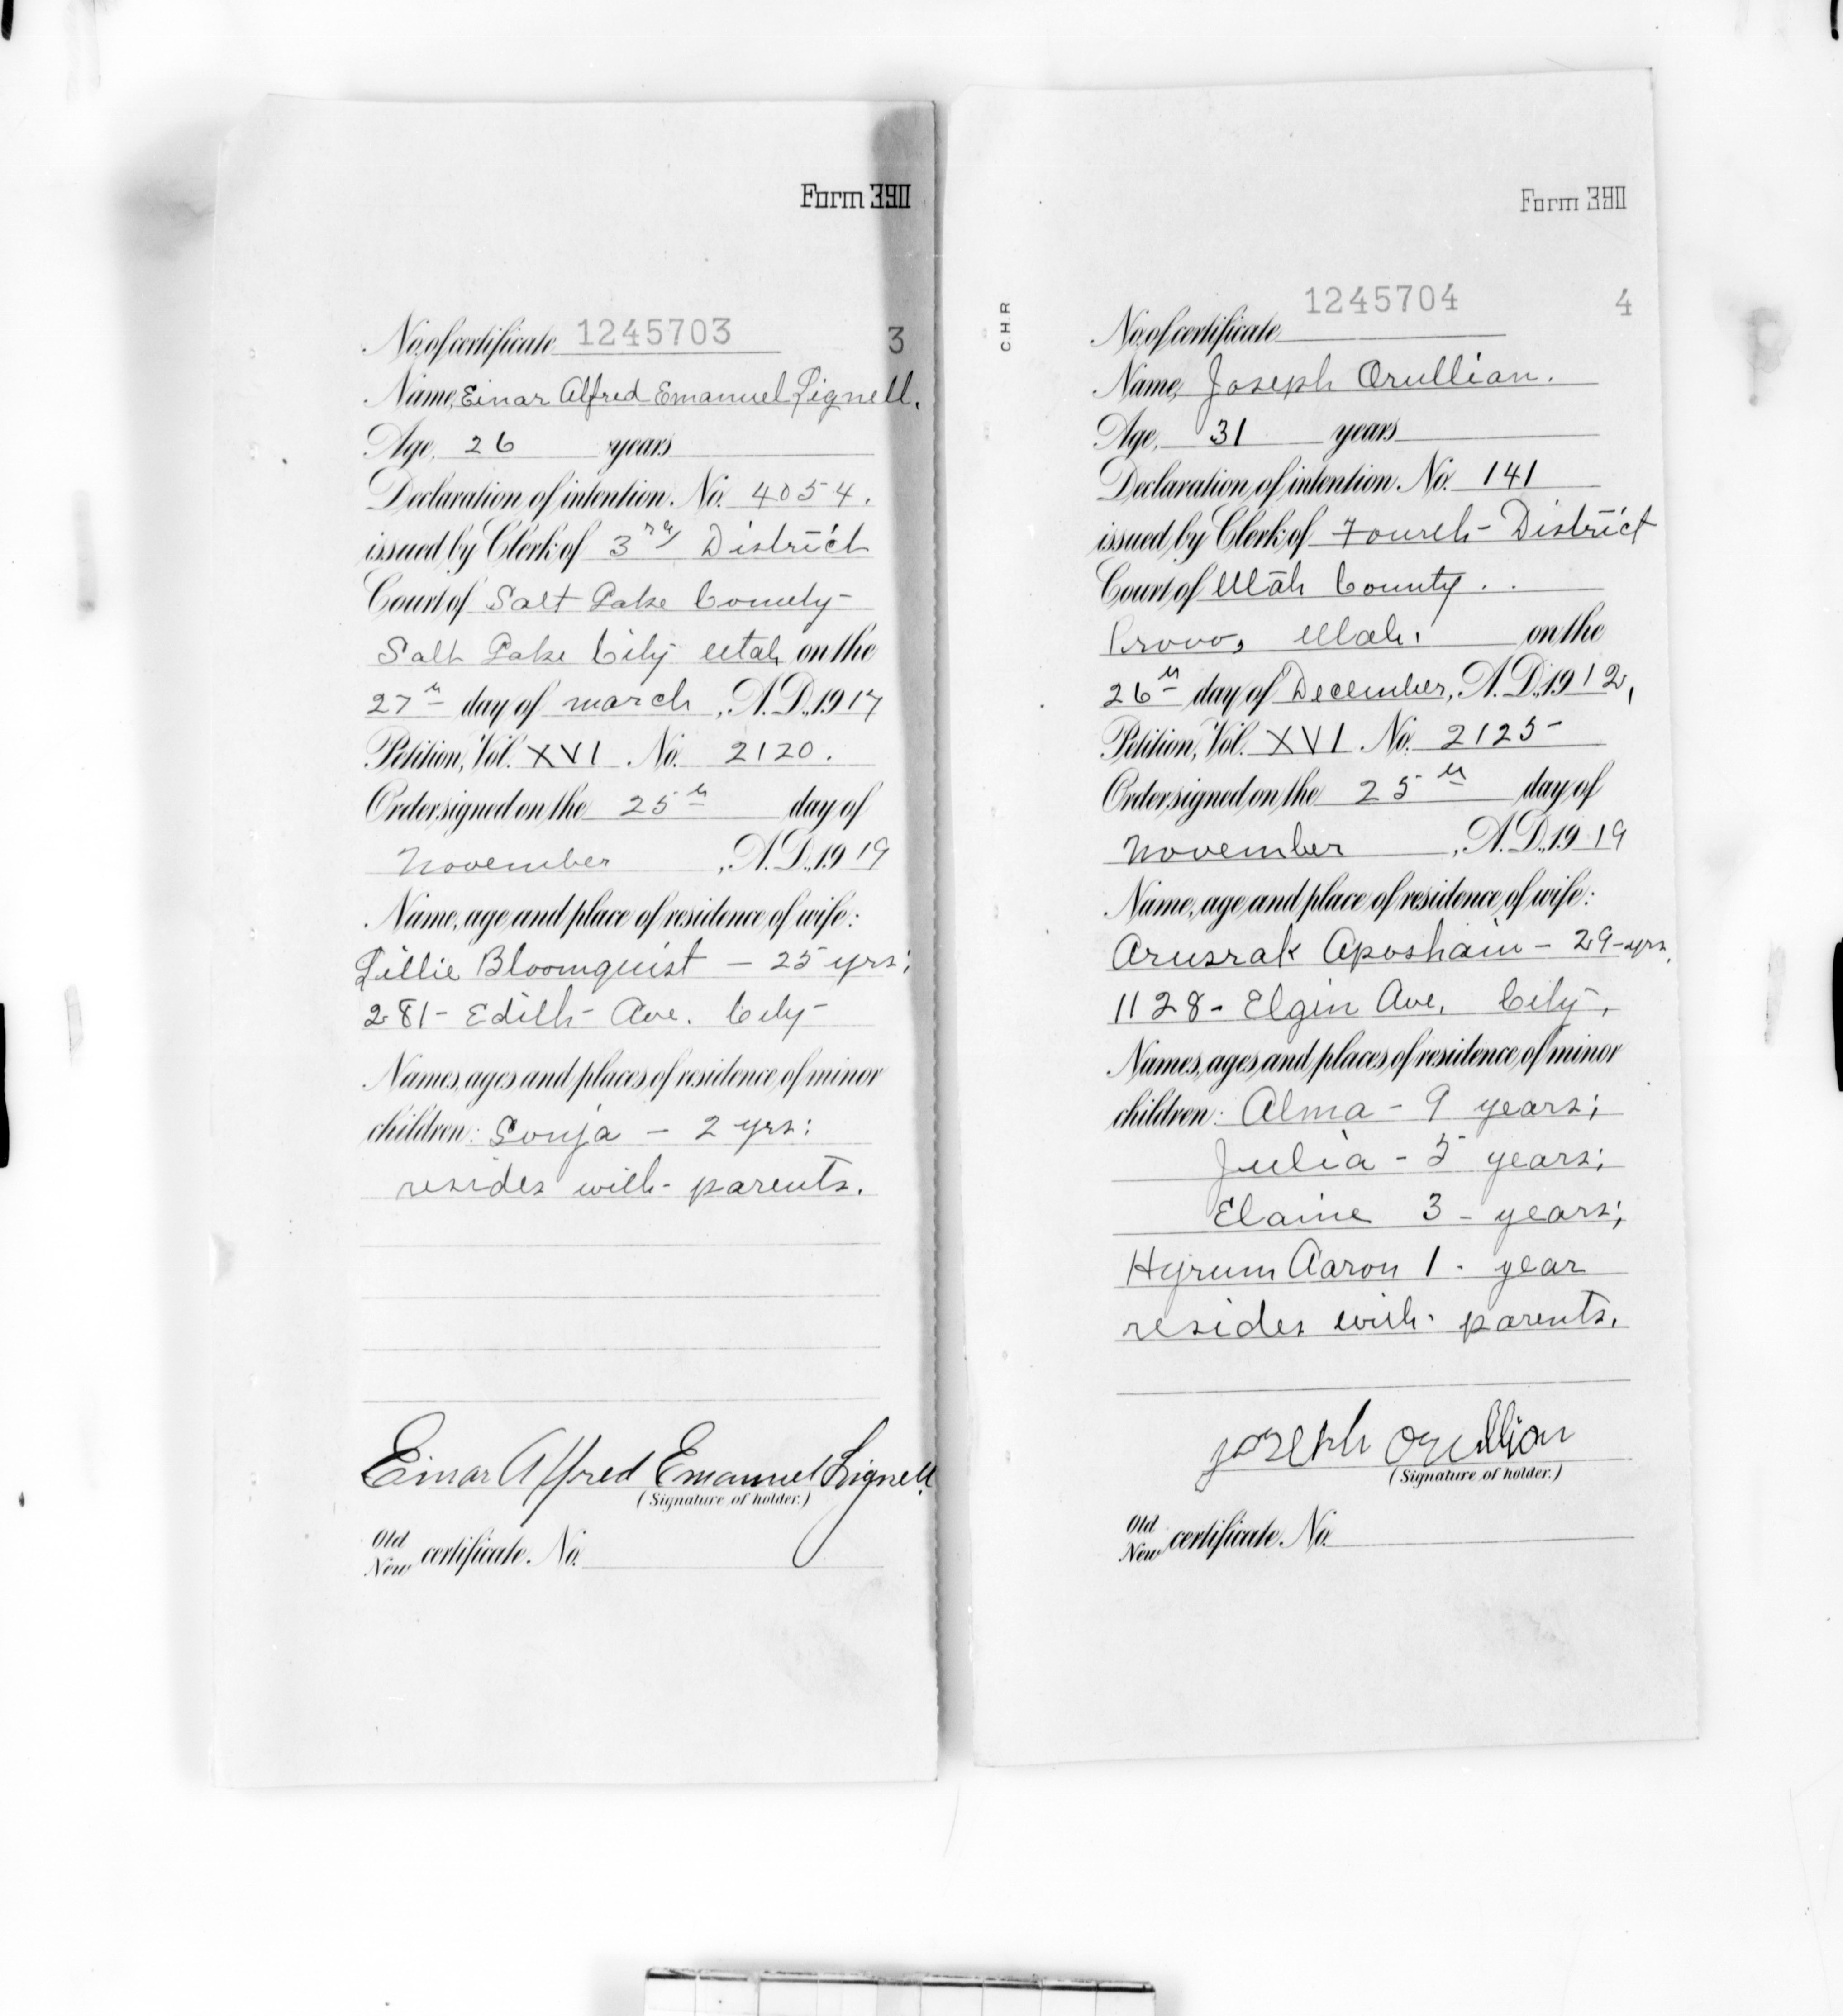 Form 390
No. of certificate 1245703 3
Name, Einar Alfred Emanuel Lignell.
Age, 26 years
Declaration of intention, No. 4054.
issued by Clerk of 3rd District
Court of Salt Lake County
Salt Lake City Utah on the
27th day of March, A.D. 1917
Petition, Vol. XVI No. 2120.
Order signed on the 25th day of
November, A.D. 1919
Name, age and place of residence of wife:
Lillie Bloomquist - 25 yrs;
281 - Edith - Ave. City -
Names, ages and places of residence of minor
children: Sonja - 2 yrs:
resides with parents.
Einar Alfred Emanuel Lignell.
(Signature of holder.)
Old
New certificate, No.
Form 390
C.H.R
1245704 4
No. of certificate
Name, Joseph Orullian.
Age, 31 years
Declaration of intention, No. 141
issued by Clerk of Fourth - District
Court of Utah County . .
Provo, Utah. on the
26th day of December, A.D. 1912,
Petition, Vol. XVI No. 2125 -
Order signed on the 25th day of
November, A.D. 1919
Name, age and place of residence of wife:
Arusrak Aposhain - 29 - yrs.
1128 - Elgin Ave. City,
Names, ages and places of residence of minor
children: Alma - 9 years;
Julia - 5 years;
Elaine 3 - years;
Hyrum Aaron 1 - year
resides with - parents.
Joseph Orullian
(Signature of holder.)
Old
New certificate, No.